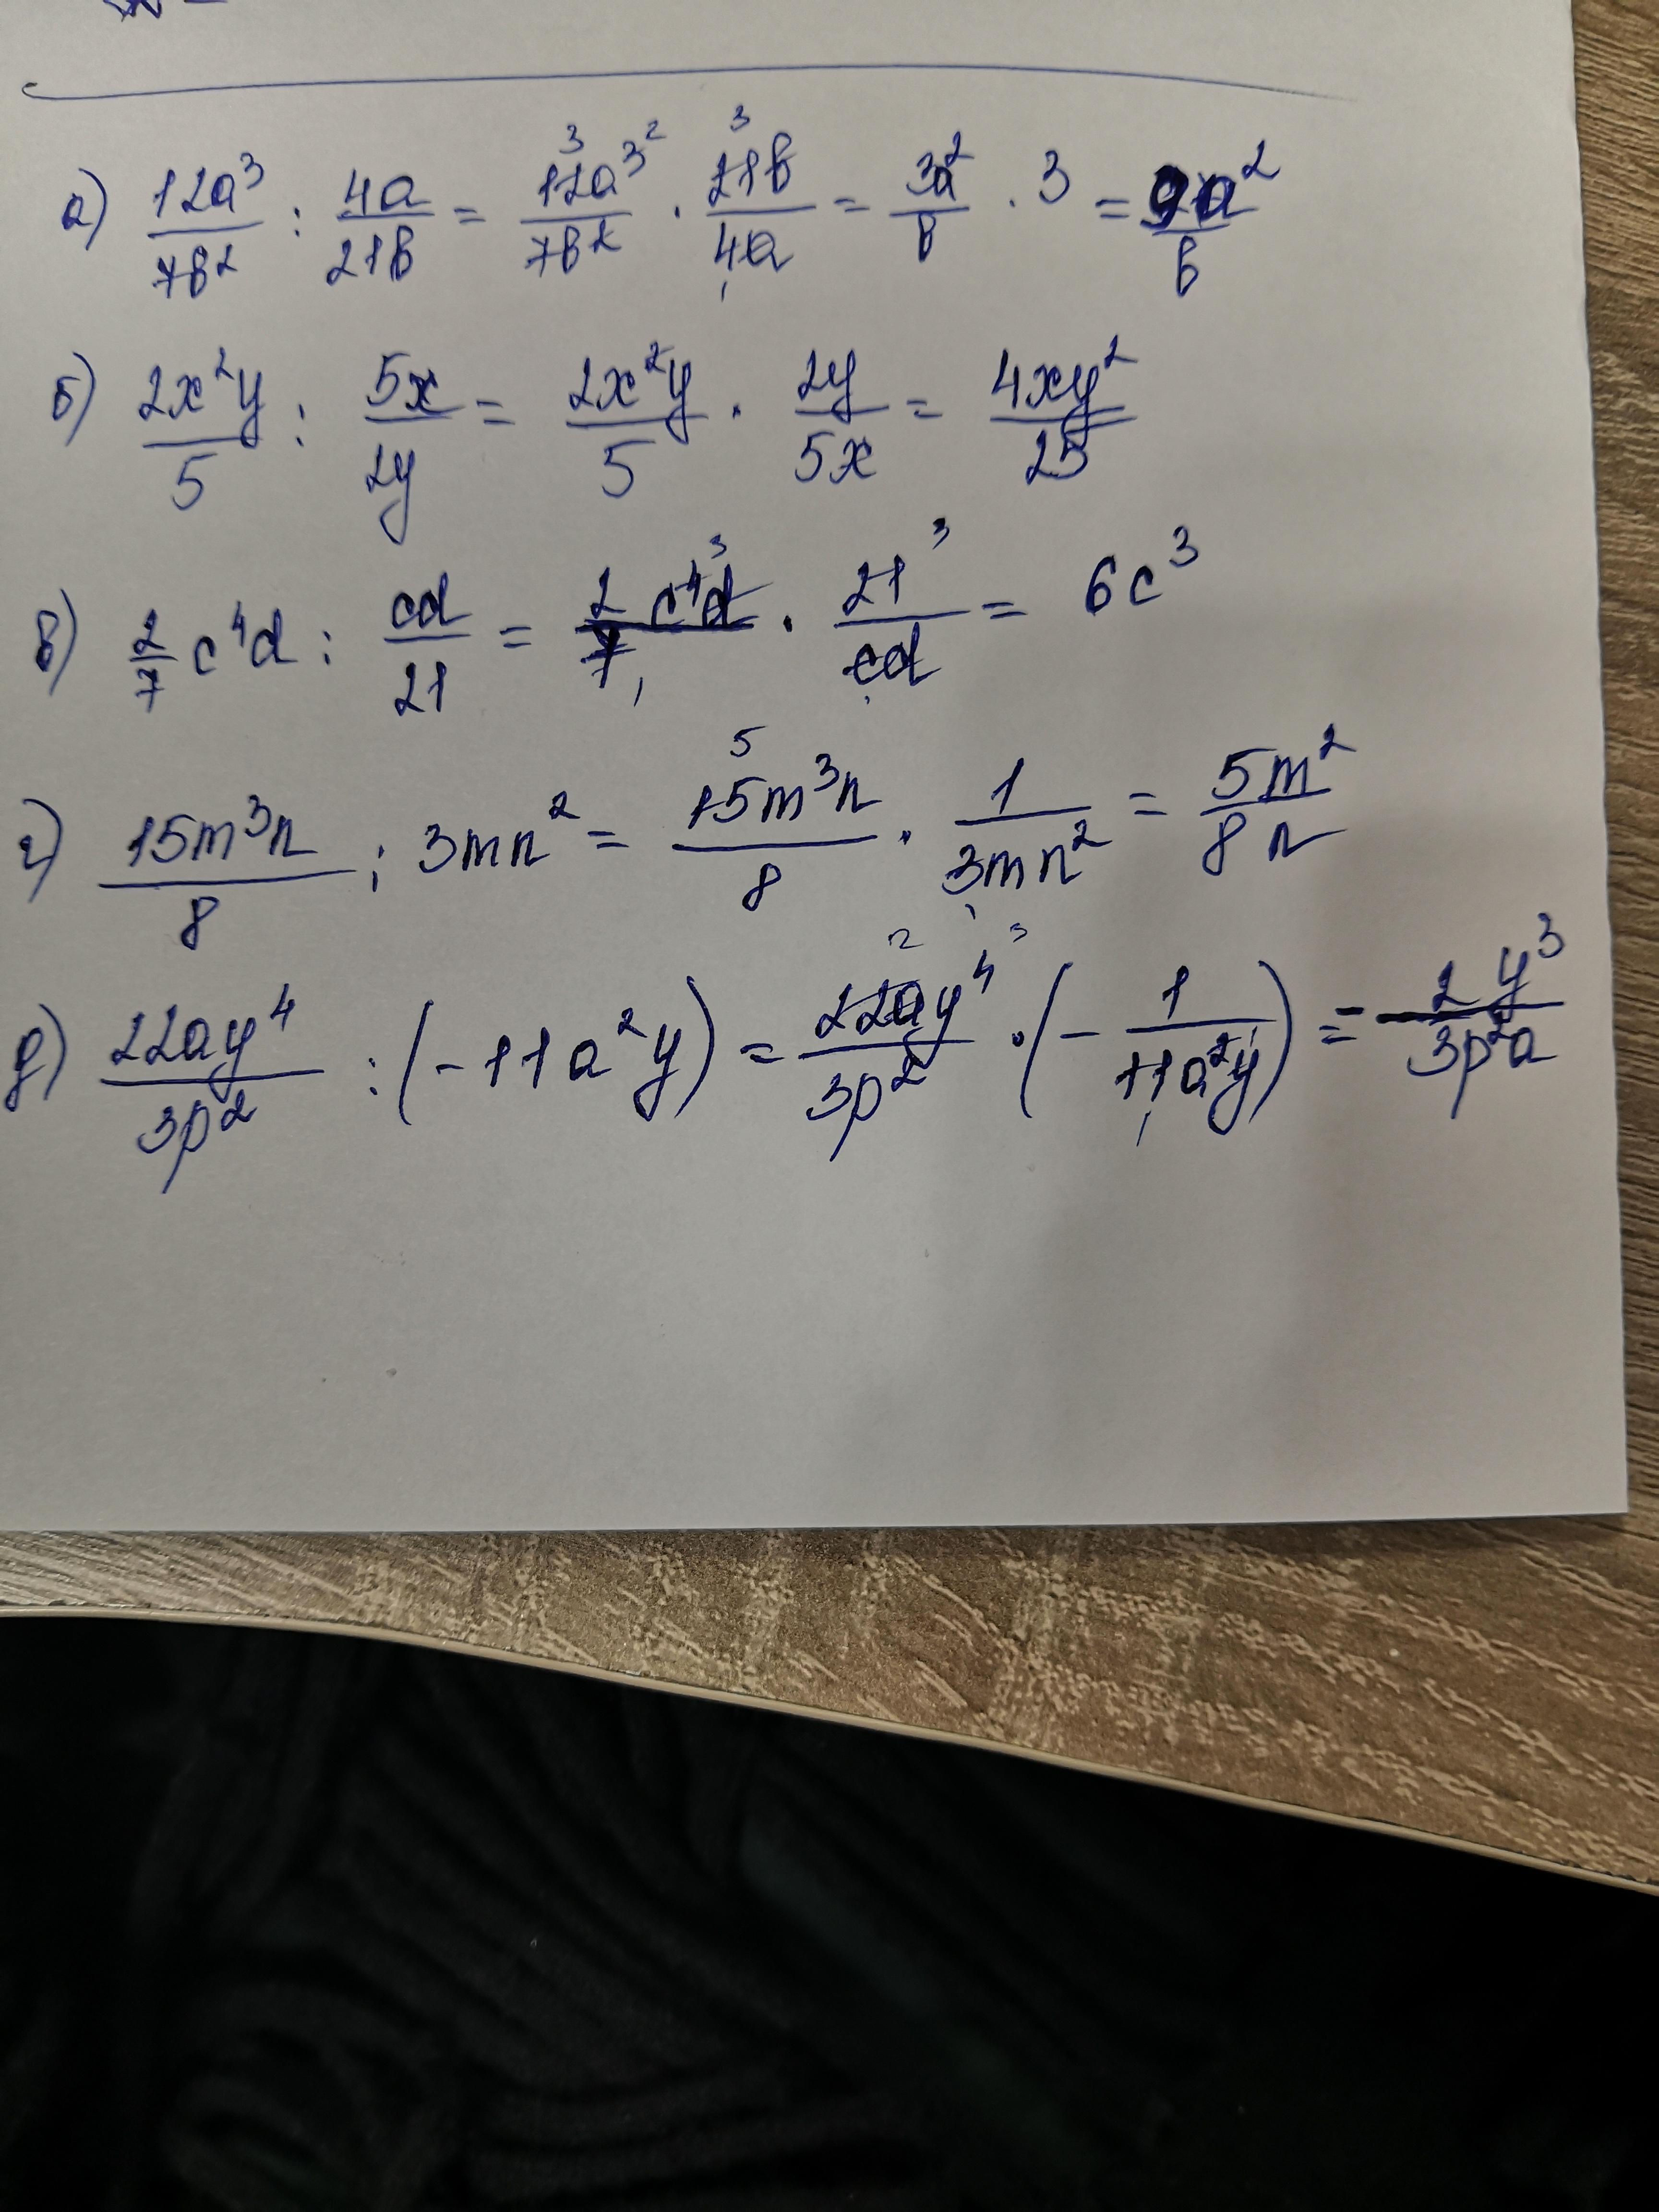 а) 12a³/7b² : 4a/21b = 12a³/7b² · 21b/4a = 3a²/b · 3 = 9a²/b
б) 2x²y/5 : 5x/2y = 2x²y/5 · 2y/5x = 4xy²/25
в) 2/7 c⁴d : cd/21 = 2c⁴d/7 · 21/cd = 6c³
г) 15m³n/8 : 3mn² = 15m³n/8 · 1/3mn² = 5m²/8n
д) 22ay⁴/3p² : (-11a²y) = 22ay⁴/3p² · (-1/11a²y) = -2y³/3p²a